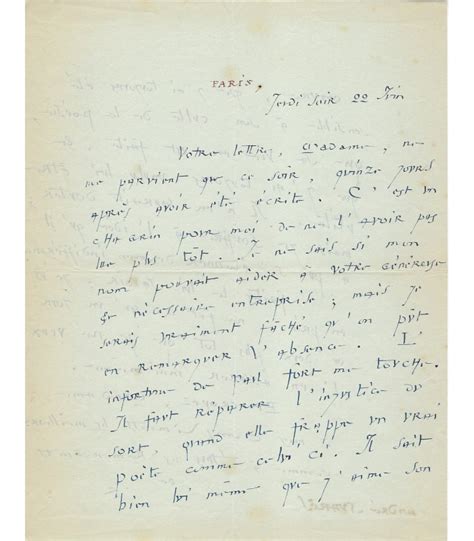 PARIS,
Jeudi soir 22 Juin
Votre lettre, Madame, ne
me parvient que ce soir, quinze jours
après avoir été écrite. C'est un
chagrin pour moi de ne l'avoir pas
lue plus tôt. Je ne sais si mon
nom pouvait aider à votre généreuse
et nécessaire entreprise; mais je
serais vraiment fâché qu'on pût
en remarquer l'absence. L'
infortune de Paul Fort me touche.
Il faut réparer l'injustice du
sort, quand elle frappe un vrai
poète comme celui ci. Il sait
bien lui même que j'aime son